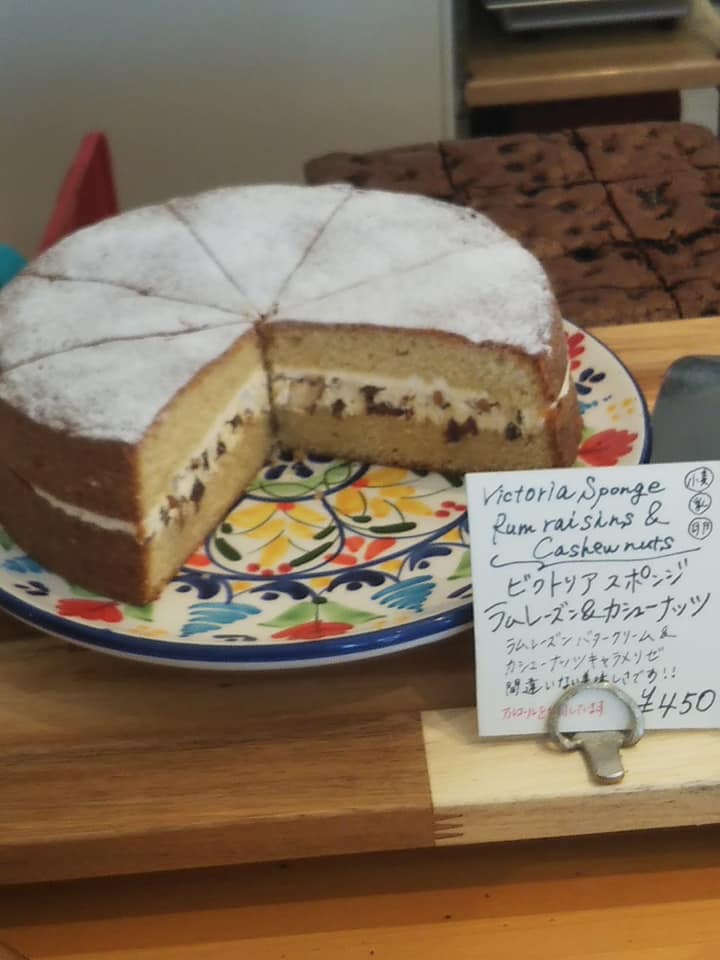 Victoria Sponge
Rum raisins &
Cashew nuts
小麦
乳
卵
ビクトリア スポンジ
ラムレーズン&カシューナッツ
ラムレーズン バタークリーム &
カシューナッツキャラメリゼ
間違いない美味しさです!!
アルコールを使用しています
¥450